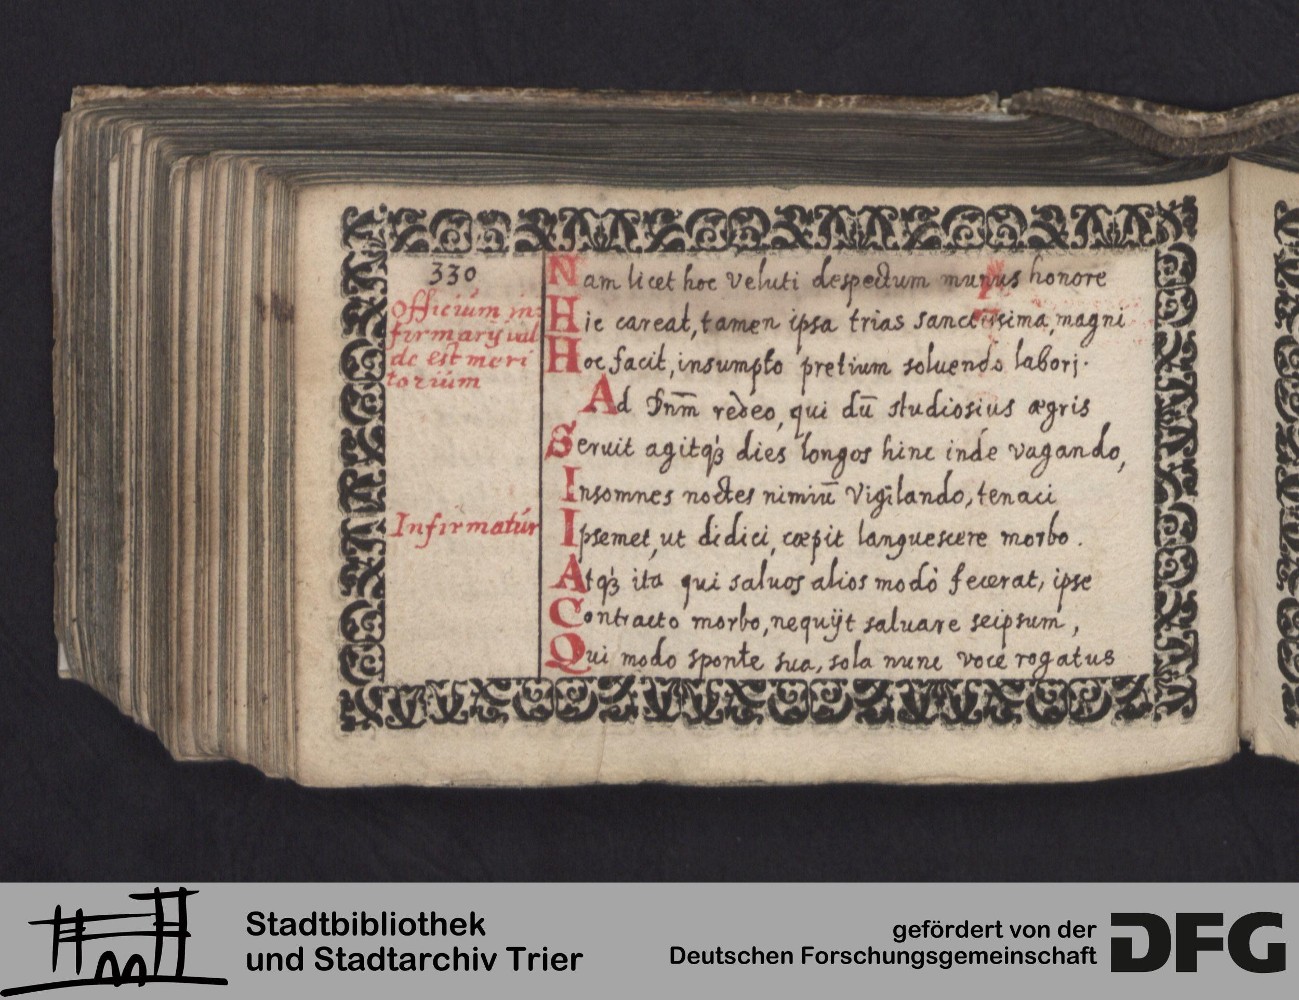 330
Officium in:
firmarij val
de est meri
torium
Infirmatur
Nam licet hoc veluti despectum munus honore
Hic careat, tamen ipsa trias sanctissima, magni
Hoc facit, insumpto pretium soluendo laborj.
Ad Dnm̄ redeo, qui dū studiosius ægris
Seruit agitqꝫ dies longos hinc inde vagando,
Insomnes noctes nimiū vigilando, tenaci
Ipsemet, ut didici, cœpit languescere morbo.
Atqꝫ ita qui saluos alios modò fecerat, ipse
Contracto morbo, nequijt saluare seipsum,
Qui modo sponte sua, sola nunc voce rogatus
Stadtbibliothek
und Stadtarchiv Trier
gefördert von der
Deutschen Forschungsgemeinschaft
DFG